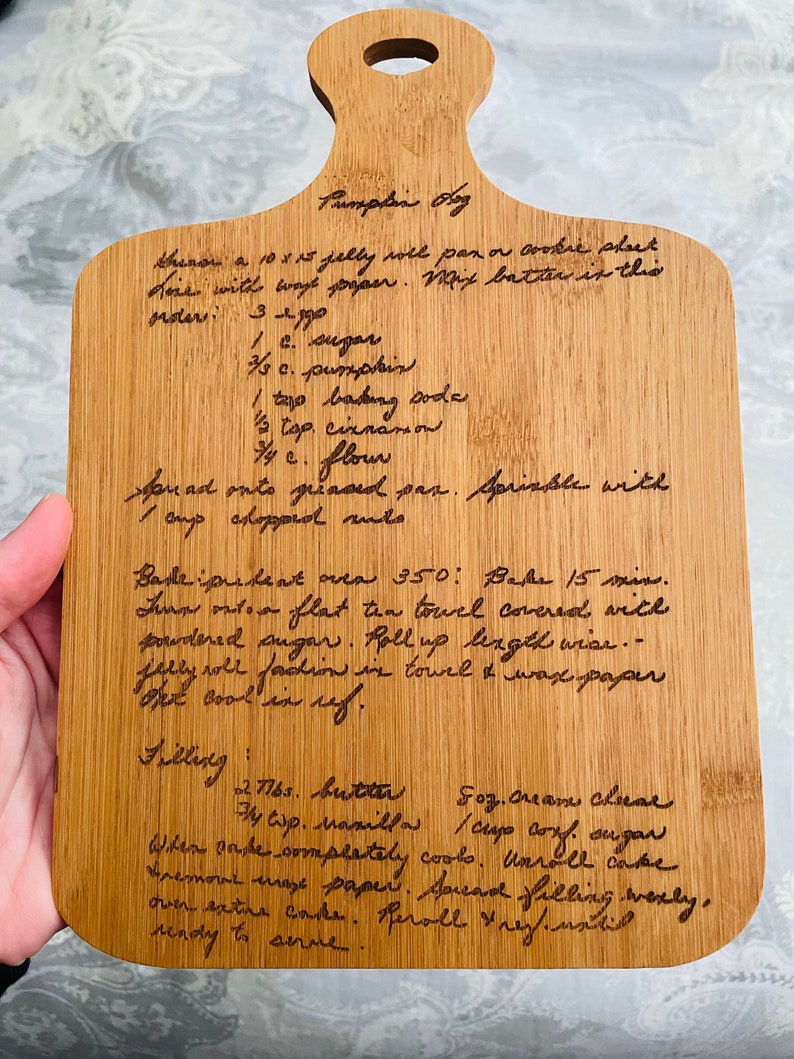 Pumpkin Log
Grease a 10 x 15 jelly roll pan or cookie sheet
Line with wax paper. Mix batter in this
order: 3 eggs
1 c. sugar
2/3 c. pumpkin
1 tsp baking soda
1/2 tsp. cinnamon
3/4 c. flour
Spread onto greased pan. Sprinkle with
1 cup chopped nuts
Bake: preheat oven 350° Bake 15 min.
Turn onto a flat tea towel covered with
powdered sugar. Roll up length wise. -
jelly roll fashion in towel & wax paper
Let cool in ref.
Filling :
2 Tbs. butter 8 oz. cream cheese
3/4 tsp. vanilla 1 cup conf. sugar
When cake completely cools. Unroll cake
& remove wax paper. Spread filling evenly,
over entire cake. Reroll & ref. until
ready to serve.